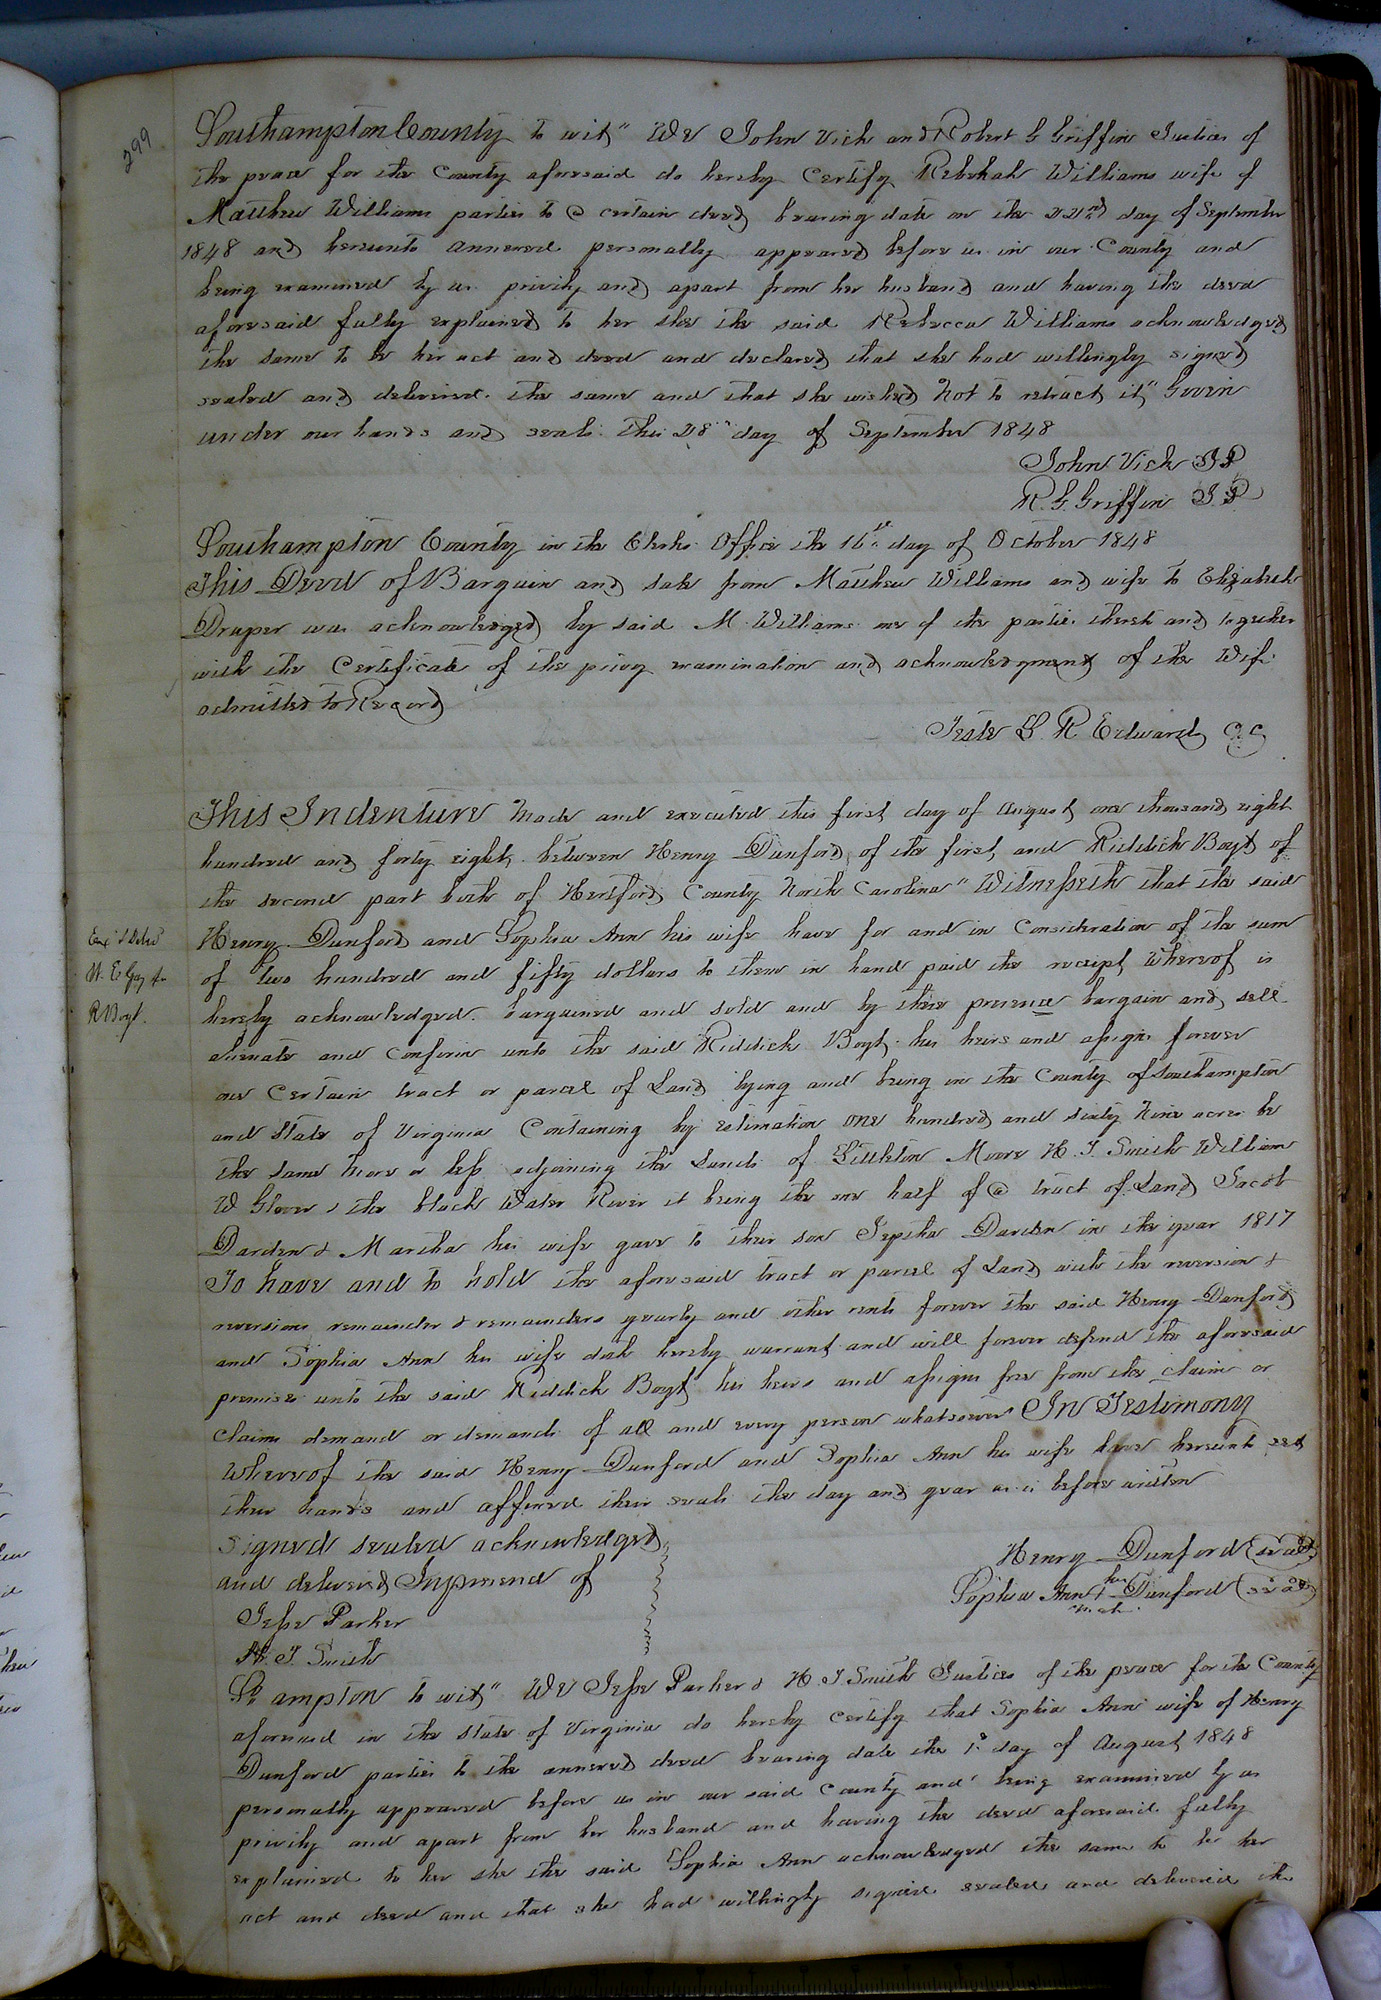 299
Southampton County to wit" We John Vick and Robert G Griffin Justices of
the peace for the County aforesaid do hereby Certify Rebekah Williams wife of
Matthew Williams parties to a certain deed bearing date on the 22nd day of September
1848 and hereunto annexed personally appeared before us in our County and
being examined by us privily and apart from her husband and having the deed
aforesaid fully explained to her she the said Rebecca Williams acknowledged
the same to be her act and deed and declared that she had willingly signed
sealed and delivered the same and that she wished not to retract it" Given
under our hands and seals this 28th day of September 1848
John Vick JP
R. G. Griffin J.P
Southampton County in the Clerks Office the 16th day of October 1848
This Deed of Bargain and sale from Matthew Williams and wife to Elizabeth
Draper was acknowledged by said M Williams one of the parties thereto and together
with the Certificate of the privy examination and acknowledgment of the Wife
admitted to Record
Teste L. R. Edwards CC
This Indenture Made and executed this first day of August one thousand eight
hundred and forty eight between Henry Dunford of the first and Riddick Boyt of
the second part both of Hertford County North Carolina" Witnesseth that the said
Henry Dunford and Sophia Ann his wife have for and in Consideration of the sum
of two hundred and fifty dollars to them in hand paid the receipt Whereof is
hereby acknowledged bargained and sold and by these presence bargain and sell
alienate and confirm unto the said Riddick Boyt his heirs and assigns forever
one Certain tract or parcel of Land lying and being in the County of Southampton
and State of Virginia Containing by estimation one hundred and sixty Nine acres be
the same more or less adjoining the Lands of Littleton Moore H. J. Smith William
W Glover & the black Water River it being the one half of a tract of Land Jacob
Darden & Martha his wife gave to their son Jeptha Darden in the year 1817
To have and to hold the aforesaid tract or parcel of Land with the reversion &
reversions remainder & remainders yearly and other rents forever the said Henry Dunford
and Sophia Ann his wife doth hereby warrant and will forever defend the aforesaid
premises unto the said Riddick Boyt his heirs and assigns free from the claim or
claims demand or demands of all and every person whatsoever In Testimony
Whereof the said Henry Dunford and Sophia Ann his wife have hereunto set
their hands and affixed their seals the day and year as is before written
Signed sealed acknowledged
and delivered In presence of
Jesse Parker
H. J. Smith
Henry Dunford (seal)
Sophia Ann + her Dunford (seal)
mark
Exd & Deld
W. E Gay for
R Boyt.
So ampton to wit" We Jesse Parker & H. J. Smith Justices of the peace for the County
aforesaid in the State of Virginia do hereby certify that Sophia Ann wife of Henry
Dunford parties to the annexed deed bearing date the 1st day of August 1848
personally appeared before us in our said County and being examined by us
privily and apart from her husband and having the deed aforesaid fully
explained to her she the said Sophia Ann acknowledged the same to be her
act and deed and that she had willingly signed sealed and delivered the